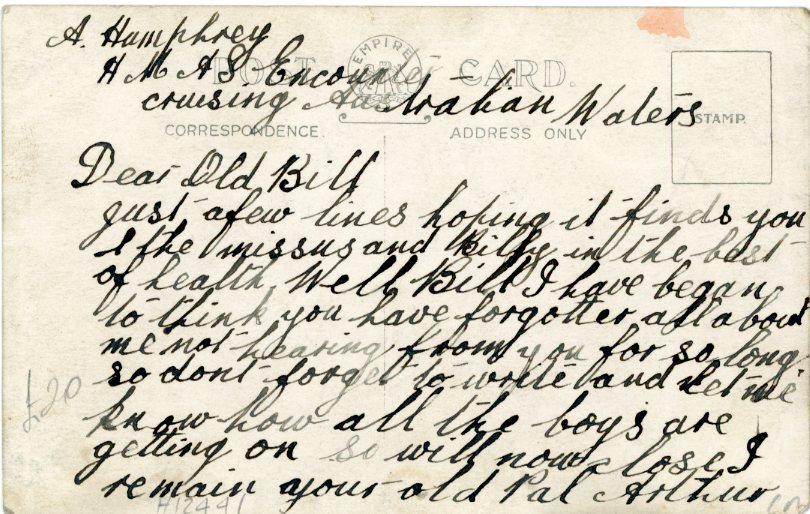 A. Humphrey
H M A S. Encounter
POST CARD.
EMPIRE
cruising Australian Waters
STAMP.
CORRESPONDENCE.
ADDRESS ONLY
Dear Old Bill
just afew lines hoping it finds you
& the missus and Billy in the best
of health. Well Bill I have began
to think you have forgotten all about
me not hearing from you for so long
so dont forget to write and let me
know how all the boys are
getting on so will now close I
remain your old Pal Arthur
£20